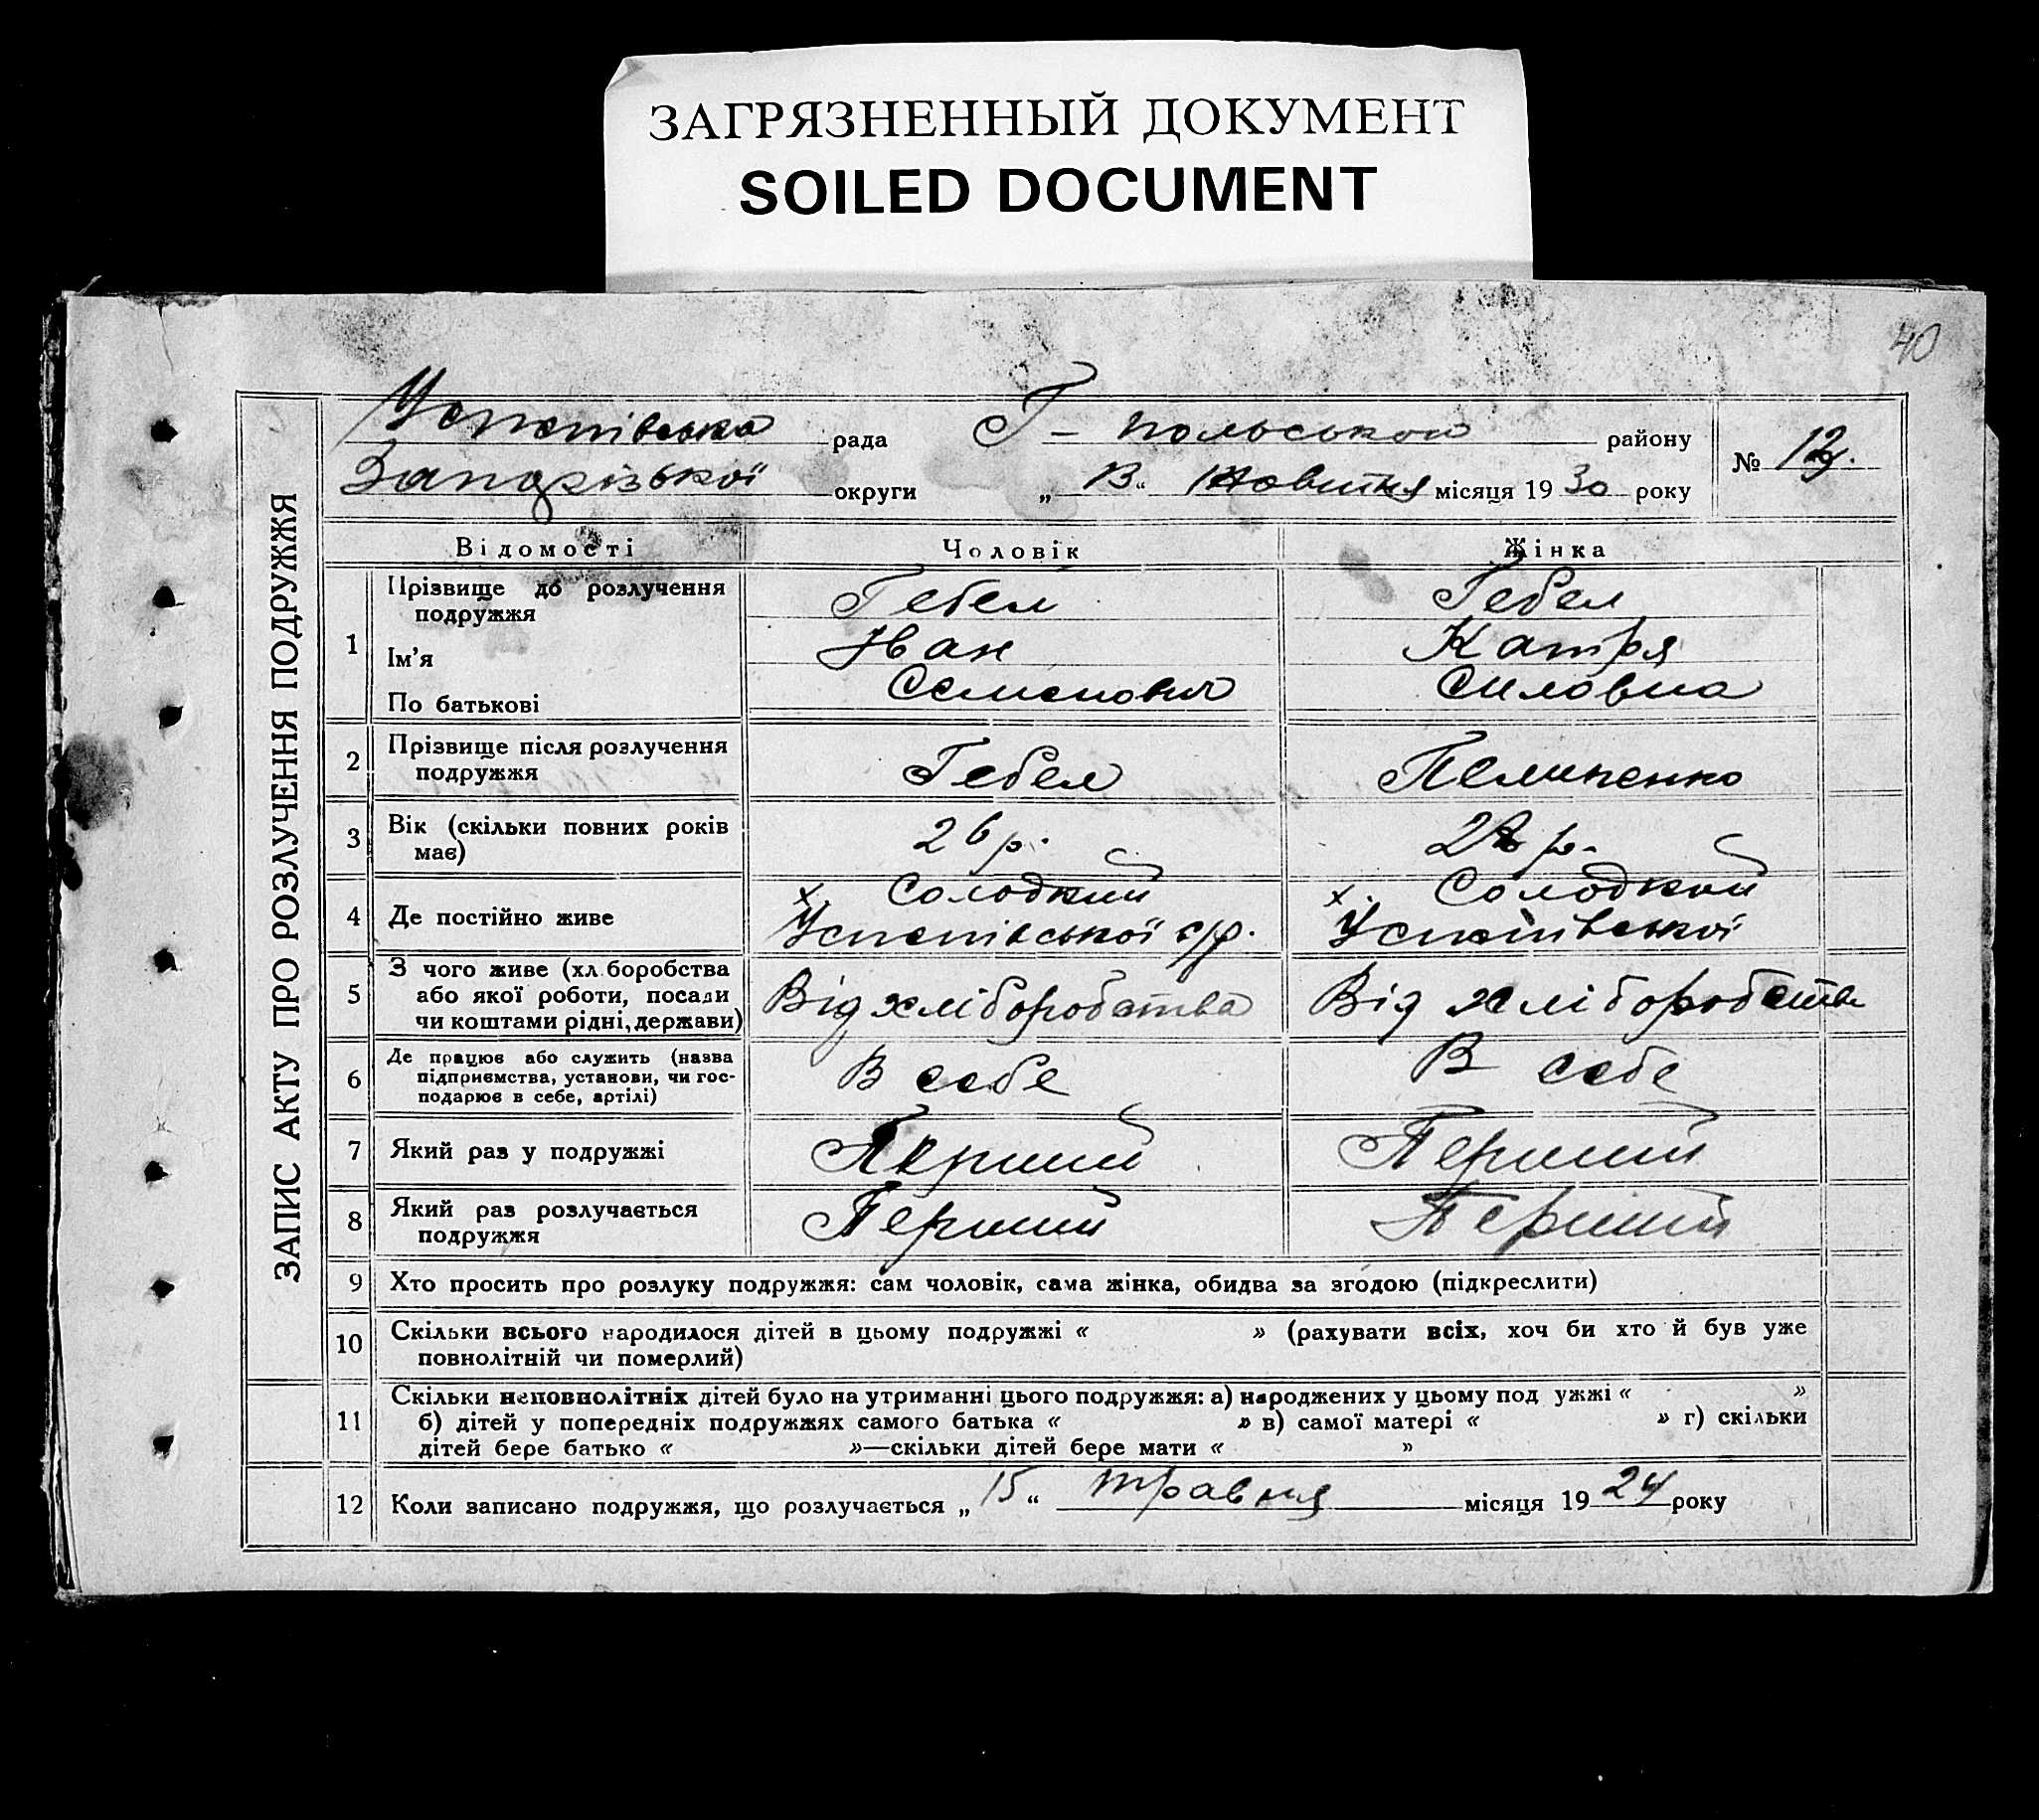 ЗАГРЯЗНЕННЫЙ ДОКУМЕНТ
SOILED DOCUMENT
40
ЗАПИС АКТУ ПРО РОЗЛУЧЕННЯ ПОДРУЖЖЯ
Успенівська рада Г-польського району
№ 12
Запорізької округи „ 13 “ Жовтня місяця 1930 року
Відомості Чоловік Жінка
1 Прізвище до розлучення подружжя Гебел Гебел
Ім'я Іван Катря
По батькові Семенович Силовна
2 Прізвище після розлучення
подружжя Гебел Пелипенко
3 Вік (скільки повних років
має) 26 р. р.
4 Де постійно живе х. Солодкий х. Солодкий
Успенівської с/р. Успенівської
5 З чого живе (хл.боробства
або якої роботи, посади
чи коштами рідні, держави) Від хліборобства Від хліборобства
6 Де працює або служить (назва
підприємства, установи, чи гос-
подарює в себе, артілі) В себе В себе
7 Який раз у подружжі Перший Перший
8 Який раз розлучається
подружжя Перший Перший
9 Хто просить про розлуку подружжя: сам чоловік, сама жінка, обидва за згодою (підкреслити)
10 Скільки всього народилося дітей в цьому подружжі « » (рахувати всіх, хоч би хто й був уже
повнолітній чи померлий)
11 Скільки неповнолітніх дітей було на утриманні цього подружжя: а) народжених у цьому под ужжі « »
б) дітей у попередніх подружжях самого батька « » в) самої матері « » г) скільки
дітей бере батько « »—скільки дітей бере мати « »
12 Коли записано подружжя, що розлучається „ 15 “ травня місяця 1924 року